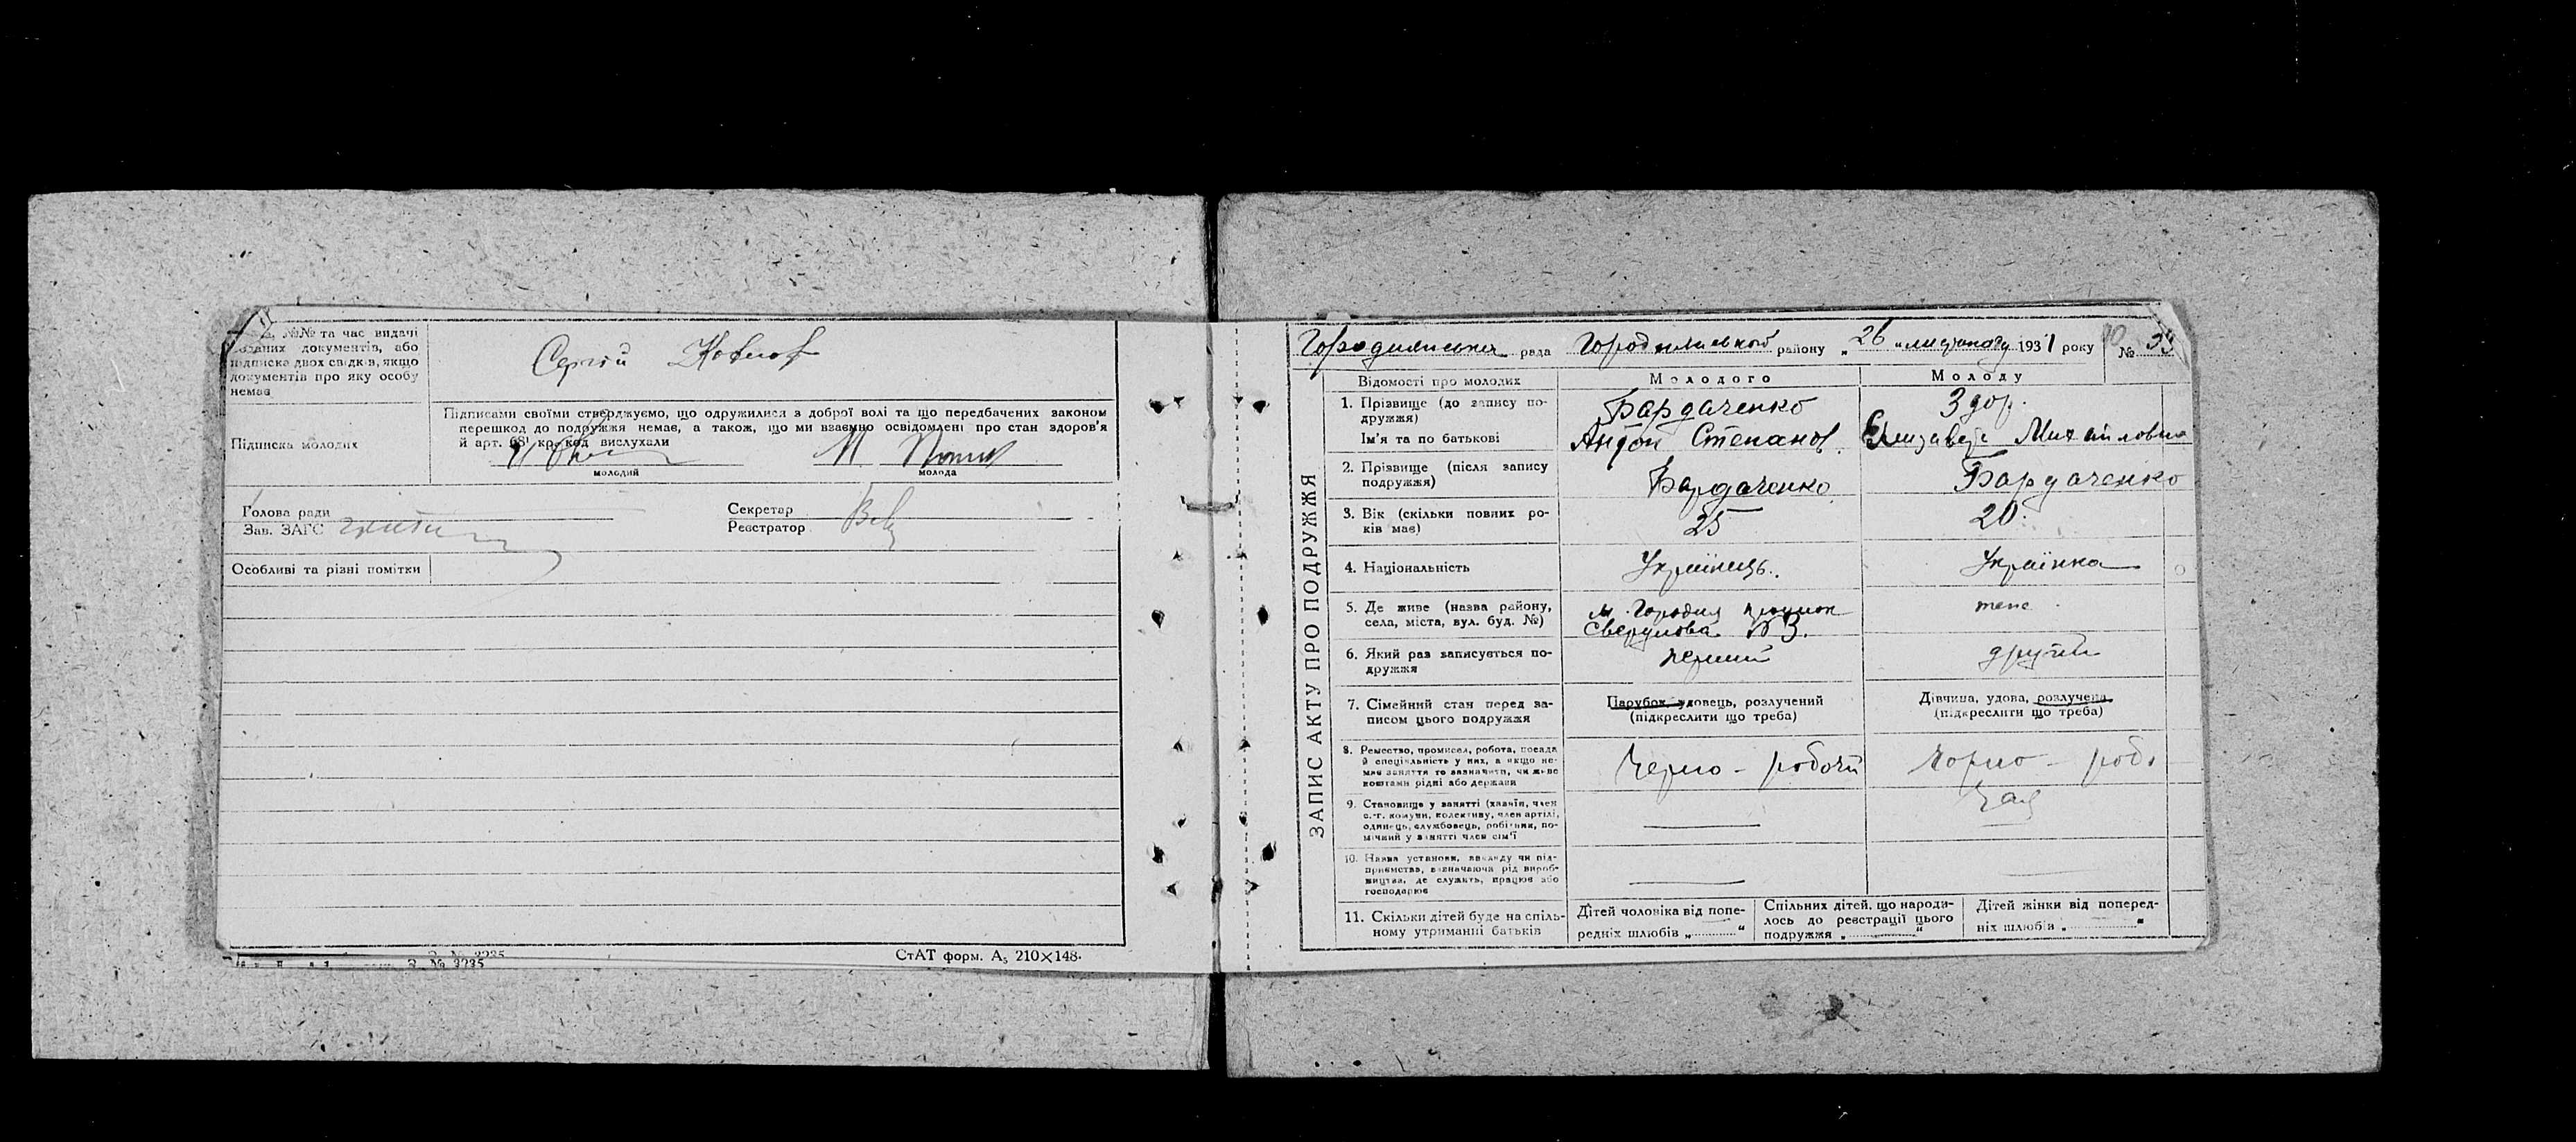 №№ та час видачі
документів, або
підписка двох свідків, якщо
документів про яку особу
немає
Сергій
Підписка молодих
Підписами своїми стверджуємо, що одружилися з доброї волі та що передбачених законом
перешкод до подружжя немає, а також, що ми взаємно освідомлені про стан здоров'я
й арт. 68¹ кр. код вислухали
молодий
молода
Голова ради
Зав. ЗАГС
Секретар
Реєстратор
Особливі та різні помітки
З. № 3235
З. № 3235
СтАТ форм. А₅ 210×148.
ЗАПИС АКТУ ПРО ПОДРУЖЖЯ
рада
району „ 26 " листопаду 1931 року
№
Відомості про молодих
Молодого
Молоду
1. Прізвище (до запису по-
дружжя)
Бардаченко
Здор.
Ім'я та по батькові
Антон Степанов.
Елизавета Михайловна
2. Прізвище (після запису
подружжя)
Бардаченко
Бардаченко
3. Вік (скільки повних ро-
ків має)
25
20.
4. Національність
Українець.
Українка
5. Де живе (назва району,
села, міста, вул. буд. №)
м. Городня
Свердлова № 3.
теж
6. Який раз записується по-
дружжя
перший
другий
7. Сімейний стан перед за-
писом цього подружжя
Парубок, удовець, розлучений
(підкреслити що треба)
Дівчина, удова, розлучена
(підкреслити що треба)
8. Ремество, промисел, робота, посада
й спеціяльність у них, а якщо не-
має заняття то зазначити, чи живе
коштами рідні або держави
Черно - робочий
Чорно - роб.
чая
9. Становище у занятті (хазяїн, член
с.-г. комуни, колективу, член артілі,
одинець, службовець, робітник, по-
мічний у занятті член сім'ї
10. Назва установи, закладу чи під-
приємства, зазначаючи рід вироб-
ництва, де служить, працює або
господарює
11. Скільки дітей буде на спіль-
ному утриманні батьків
Дітей чоловіка від попе-
редніх шлюбів „ "
Спільних дітей, що народи-
лось до реєстрації цього
подружжя „ "
Дітей жінки від поперед-
ніх шлюбів „ "